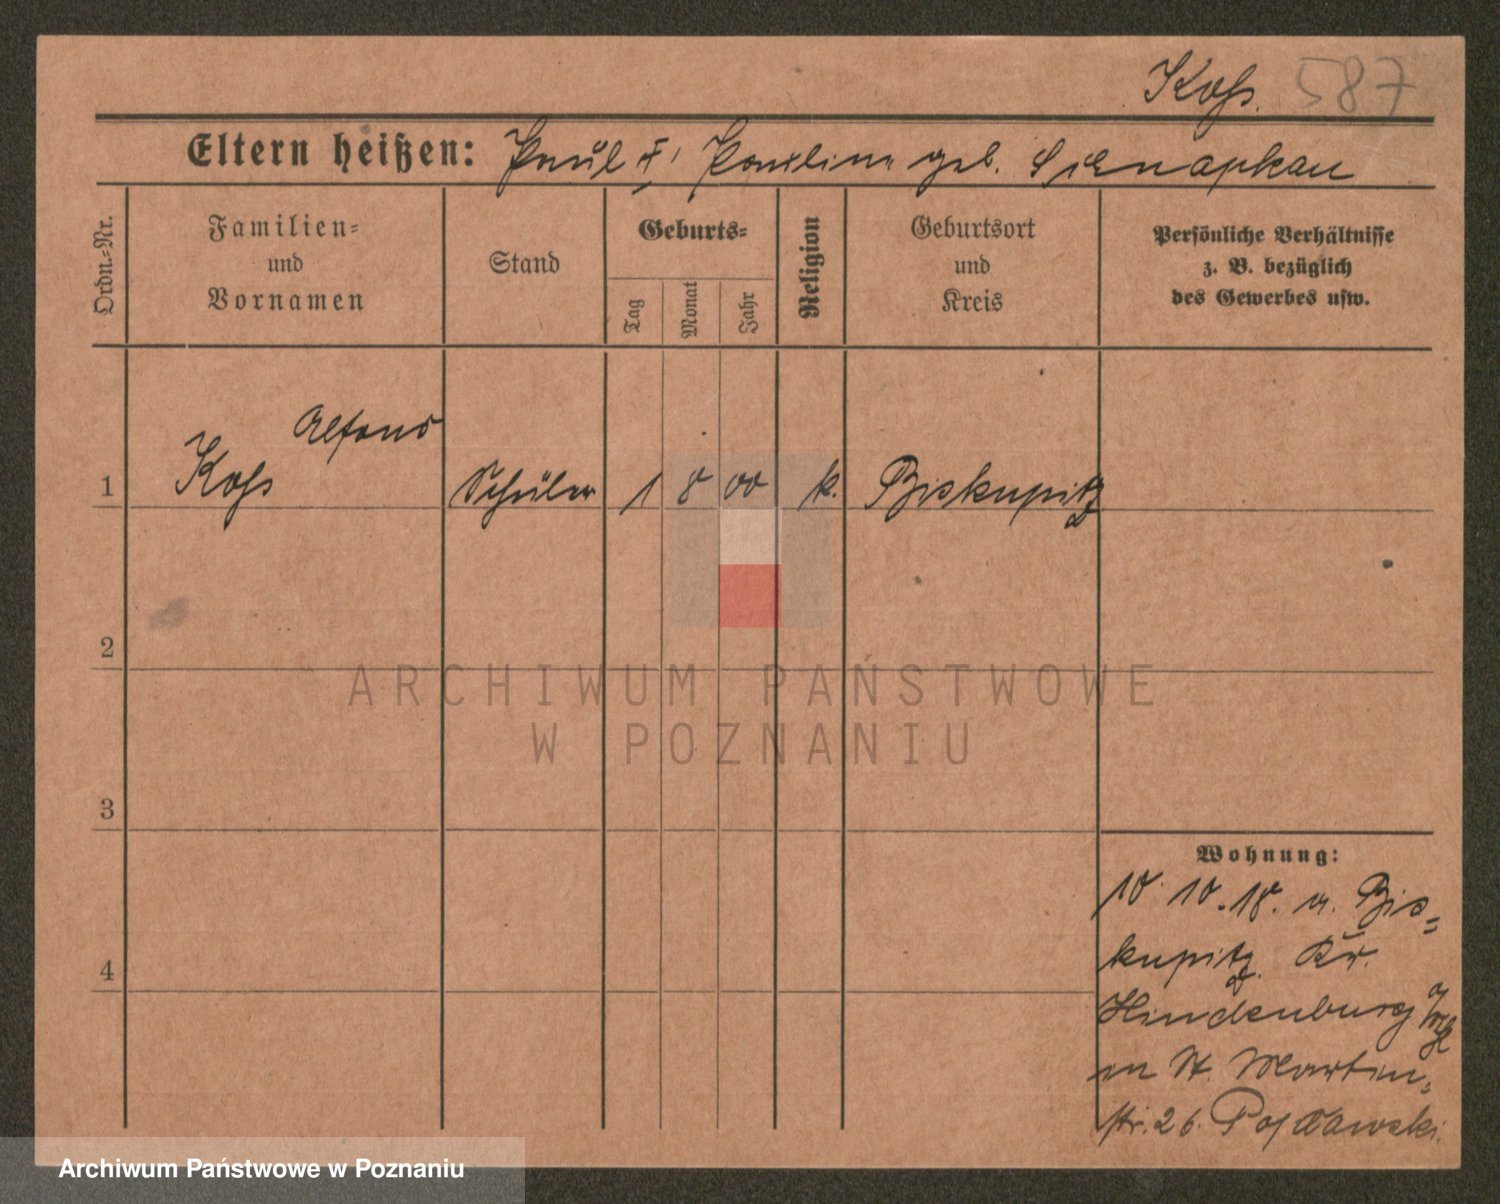 Koß. 587
Eltern heißen: Paul †, Pauline geb.
Ordn.-Nr.
Familien-
und
Vornamen
Stand
Geburts-
Tag
Monat
Jahr
Religion
Geburtsort
und
Kreis
Persönliche Verhältnisse
z. B. bezüglich
des Gewerbes usw.
Alfons
1 Koß Schüler 1 8 00 k. Biskupitz
2
ARCHIWUM PAŃSTWOWE
W POZNANIU
3
Wohnung:
10. 10. 18. a. Bis-
kupitz. Kr.
4
Hindenburg
in St. Martin-
str. 26.
Archiwum Państwowe w Poznaniu